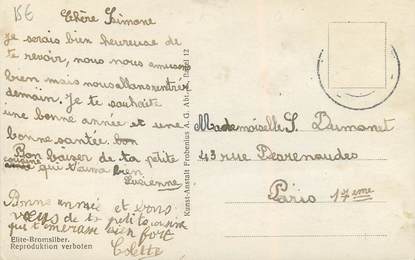 15€
Chère Simone
je serais bien heureuse de
te revoir, nous nous amusons
bien mais nous allons rentrer
demain. Je te souhaite
une bonne année et une
bonne santée. bon
Bon baiser de ta petite
cousine qui t'aime bien.
Lucienne
Bonne année et bons
vœux de ta petite cousine
qui t'embrasse bien fort
Colette
Elite-Bromsilber.
Reproduktion verboten
Kunst-Anstalt Frobenius A. G. Abt. Basel 12
Mademoiselle S. Dumanet
43 rue Desrenaudes
Paris 17eme